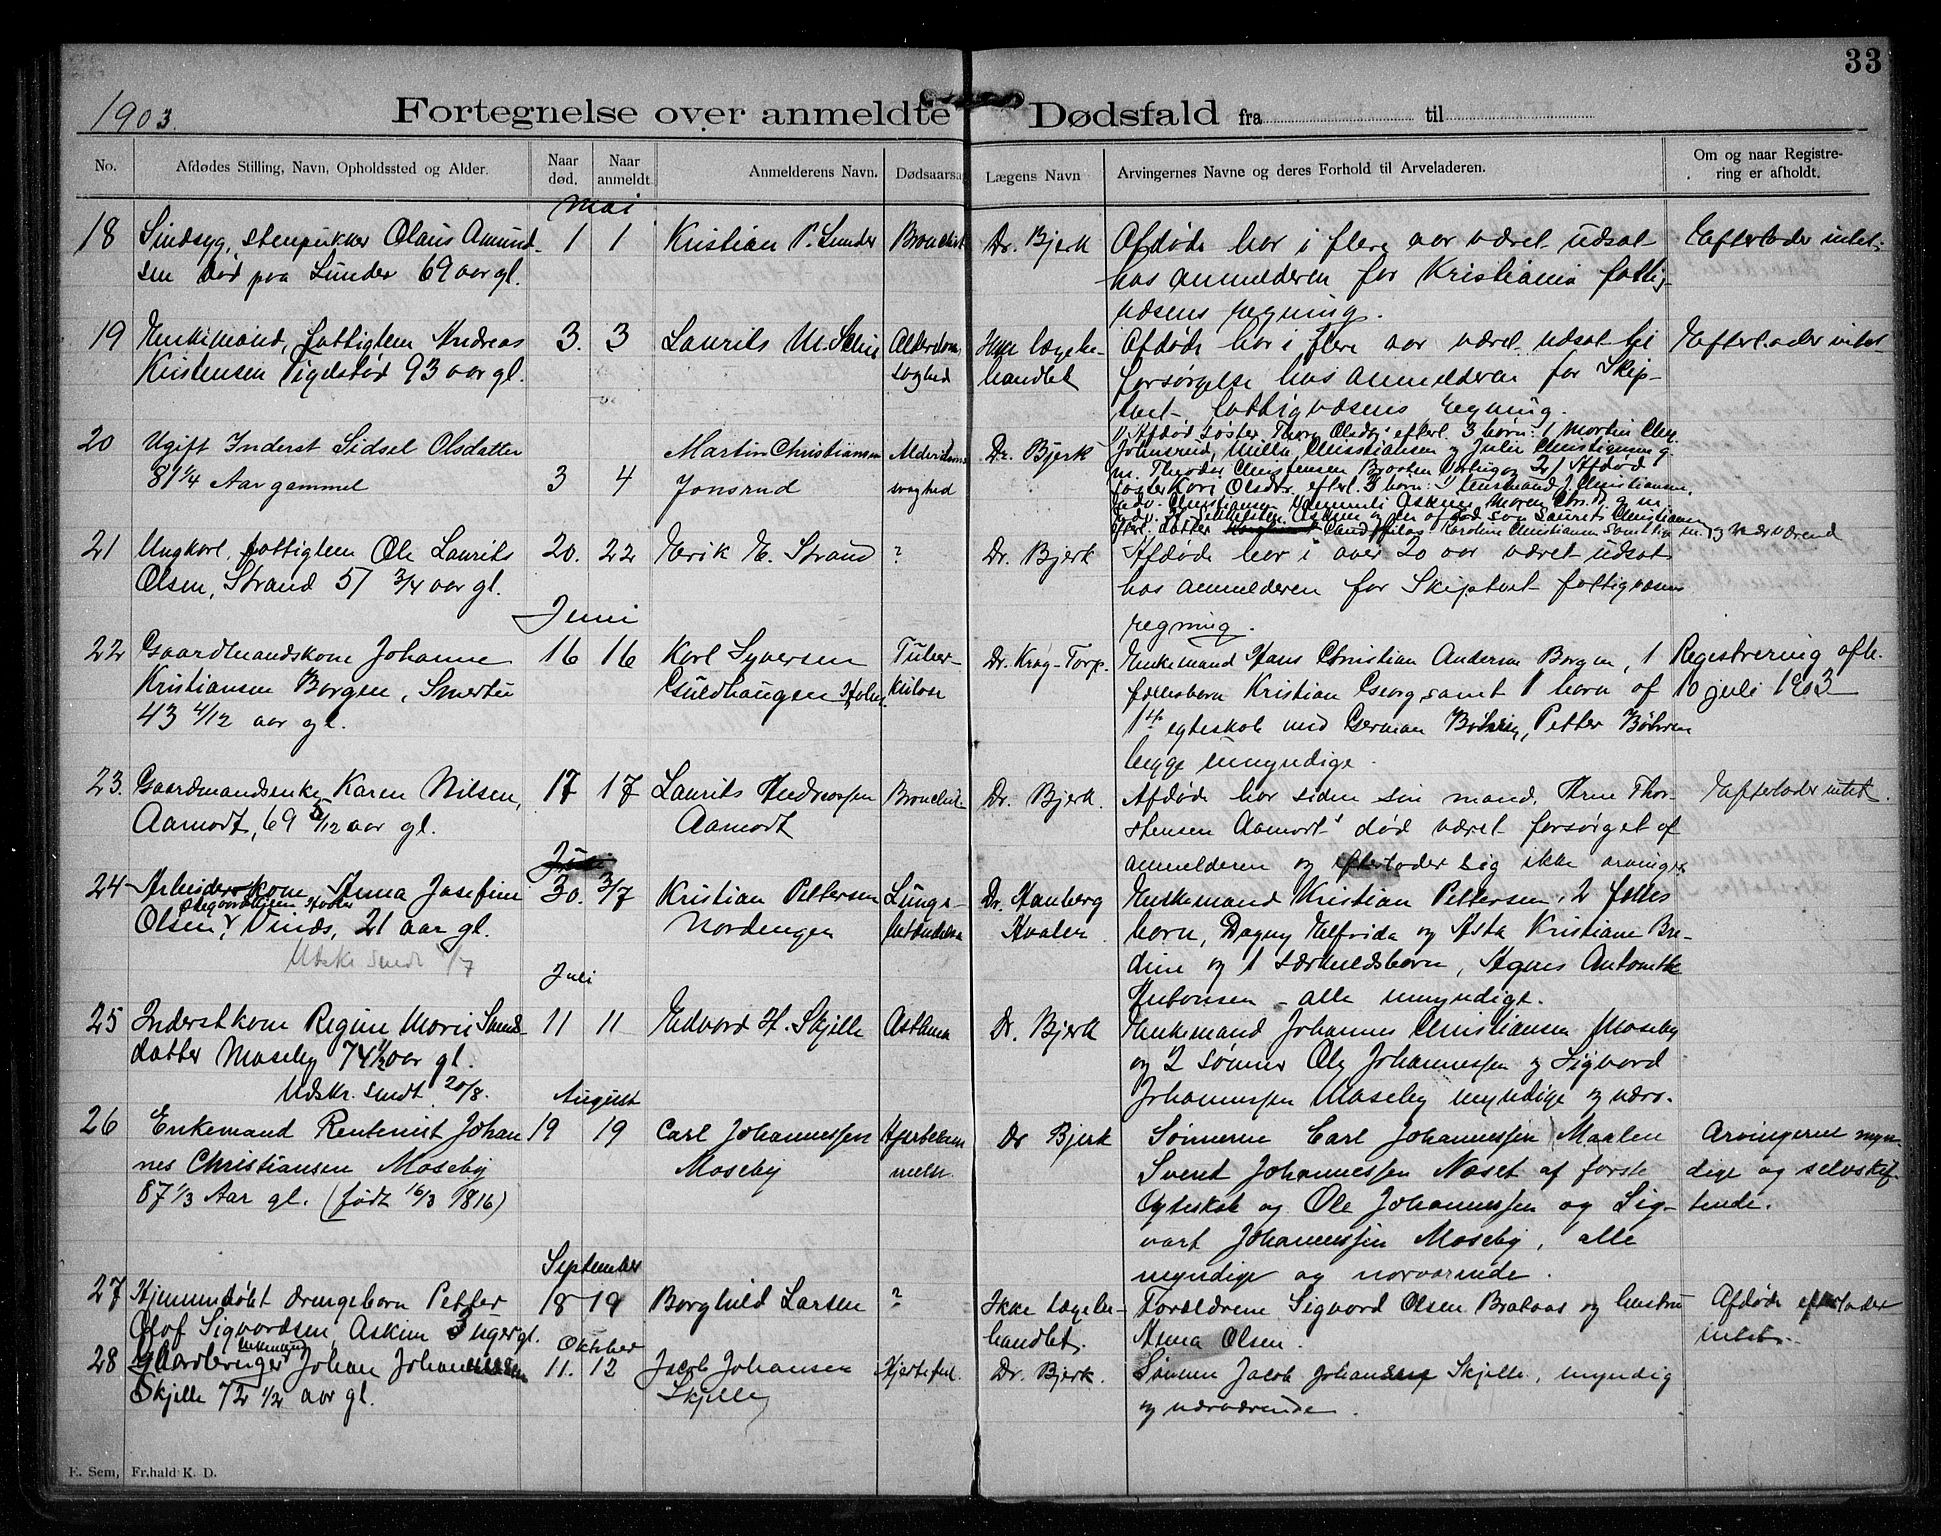 33
1903.
Fortegnelse over anmeldte Dødsfald fra til
No.
Afdødes Stilling, Navn, Opholdssted og Alder.
Naar død.
Naar anmeldt.
Anmelderens Navn.
Dødsaarsa
Lægens Navn
Arvingernes Navne og deres Forhold til Arveladeren.
Om og naar Registre-
ring er afholdt.
Mai
18 Sindsyg, stenpukker Olaus Amund- 1 1 Kristian P. Lunder Bronchit Dr. Bjerk Afdøde har i flere aar været udsat Efterlader intet.
sen død paa Lunder 69 aar gl. hos anmelderen for Kristiania fattig-
væsens regning.
19 Enkemand, fattiglem Andreas 3. 3 Laurits M. Alderdoms Ikke lægebe- Afdøde har i flere aar været udsat til Efterlader intet
Kristensen Tigelstød 93 aar gl. svaghed handlet forsørgelse hos anmelderen for Skip-
tvet fattigvæsens regning.
20 Ugift Inderst Sidsel Olsdatter Martin Christiansen Alderdoms Dr. Bjerk 1) Afdød søster Thore Olsdtr efterl. 3 børn: 1 Martin Chr.
81 1/4 Aar gammel 3 4 Jonsrud svaghed Johnsrud, Milla Christiansen og Julie Christiansen g.
m. Theodor Christensen Braaten 2) Afdød
søster Kari Olsdtr. efterl. 3 børn:
21 Ungkarl, fattiglem Ole Laurits 20. 22 Erik E. Strand ? Dr. Bjerk Afdøde har i over 20 aar været udsat
Olsen, Strand 57 3/4 aar gl. hos anmelderen for Skiptvet fattigvæsens
regning.
Juni
22 Gaardmandskone Johanne 16 16 Karl Syversen Tuber- Dr. Krag-Torp. Enkemand Hans Christian Andersen Borgen, 1 Registrering afh.
Kristiansen Borgen, Smertu Guldhaugen kulose fællesbarn Kristian Georg, samt 1 barn af 10 juli 1903
43 4/12 aar gl. 1ste egteskab med German Petter
begge umyndige.
23. Gaardmandsenke Karen Nilsen, 17 17 Laurits Andreassen Bronchit Dr. Bjerk. Afdøde har siden sin mand, Arne Thor- Efterlader intet.
Aamodt, 69 5/12 aar gl. Aamodt stensen Aamodts død været forsørget af
anmelderen og efterlader sig ikke arvinger
24 Arbeiderkone Anna Josefine 30. 3/7 Kristian Pettersen Lunge- Dr. Hanberg Enkemand Kristian Pettersen, 2 fælles
Olsen, Vinds, 21 aar gl. Nordengen betændelse Hvaler. børn, Dagny Elfrida og Asta Kristiane Bre-
Udskr. sendt /7 dine og 1 særkuldsbarn, Agnes Antonette
Antonsen - alle umyndige.
Juli
25 Inderstkone Regine Marie 11 11 Edvard H. Skjille Asthma Dr. Bjerk Enkemand Johannes Christiansen Moseby
datter Moseby 74 1/2 aar gl. og 2 sønner Ole Johannessen og Sigvard
Udskr. sendt 20/8. Johannessen Moseby myndige og nærv.
August
26 Enkemand Rentenist Johan 19 19 Carl Johannessen Hjertelam Dr Bjerk Sønnerne Carl Johannessen Maalen Arvingerne myn-
nes Christiansen Moseby Moseby melse. Svend Johannessen Næset af første dige og selvskif-
87 1/3 Aar gl. (født 16/3 1816) Egteskab og Ole Johannessen og Sig- tende.
vart Johannessen Moseby, alle
myndige og nærværende.
September
27 Hjemmedøbt drengebarn Petter 18 19 Borghild Larsen ? Ikke lægebe- Forældrene Sigvard Olsen Brataas og hustru Afdøde efterlader
Olof Sigvardsen, Askim 3 uger gl. handlet. Anna Olsen. intet.
Oktober
28 Gaardbruger Enkemand Johan Johannessen 11. 12 Jacob Johansen Hjertefeil Dr. Bjerk. Sønnen Jacob Johansen Skjille, myndig
Skjille 72 1/2 aar gl. Skjille og nærværende.
E. Sem, Fr.hald K. D.